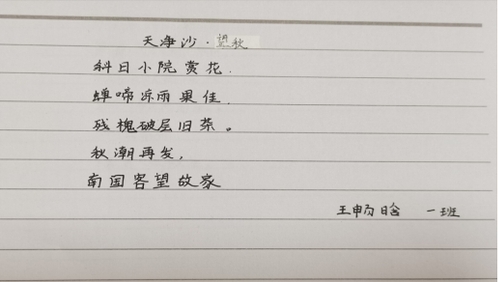 天净沙·望秋
科日小院赏花.
蝉啼添雨果佳.
残槐破屋旧茶。
秋潮再发,
南国客望故家
王畅晗 一班